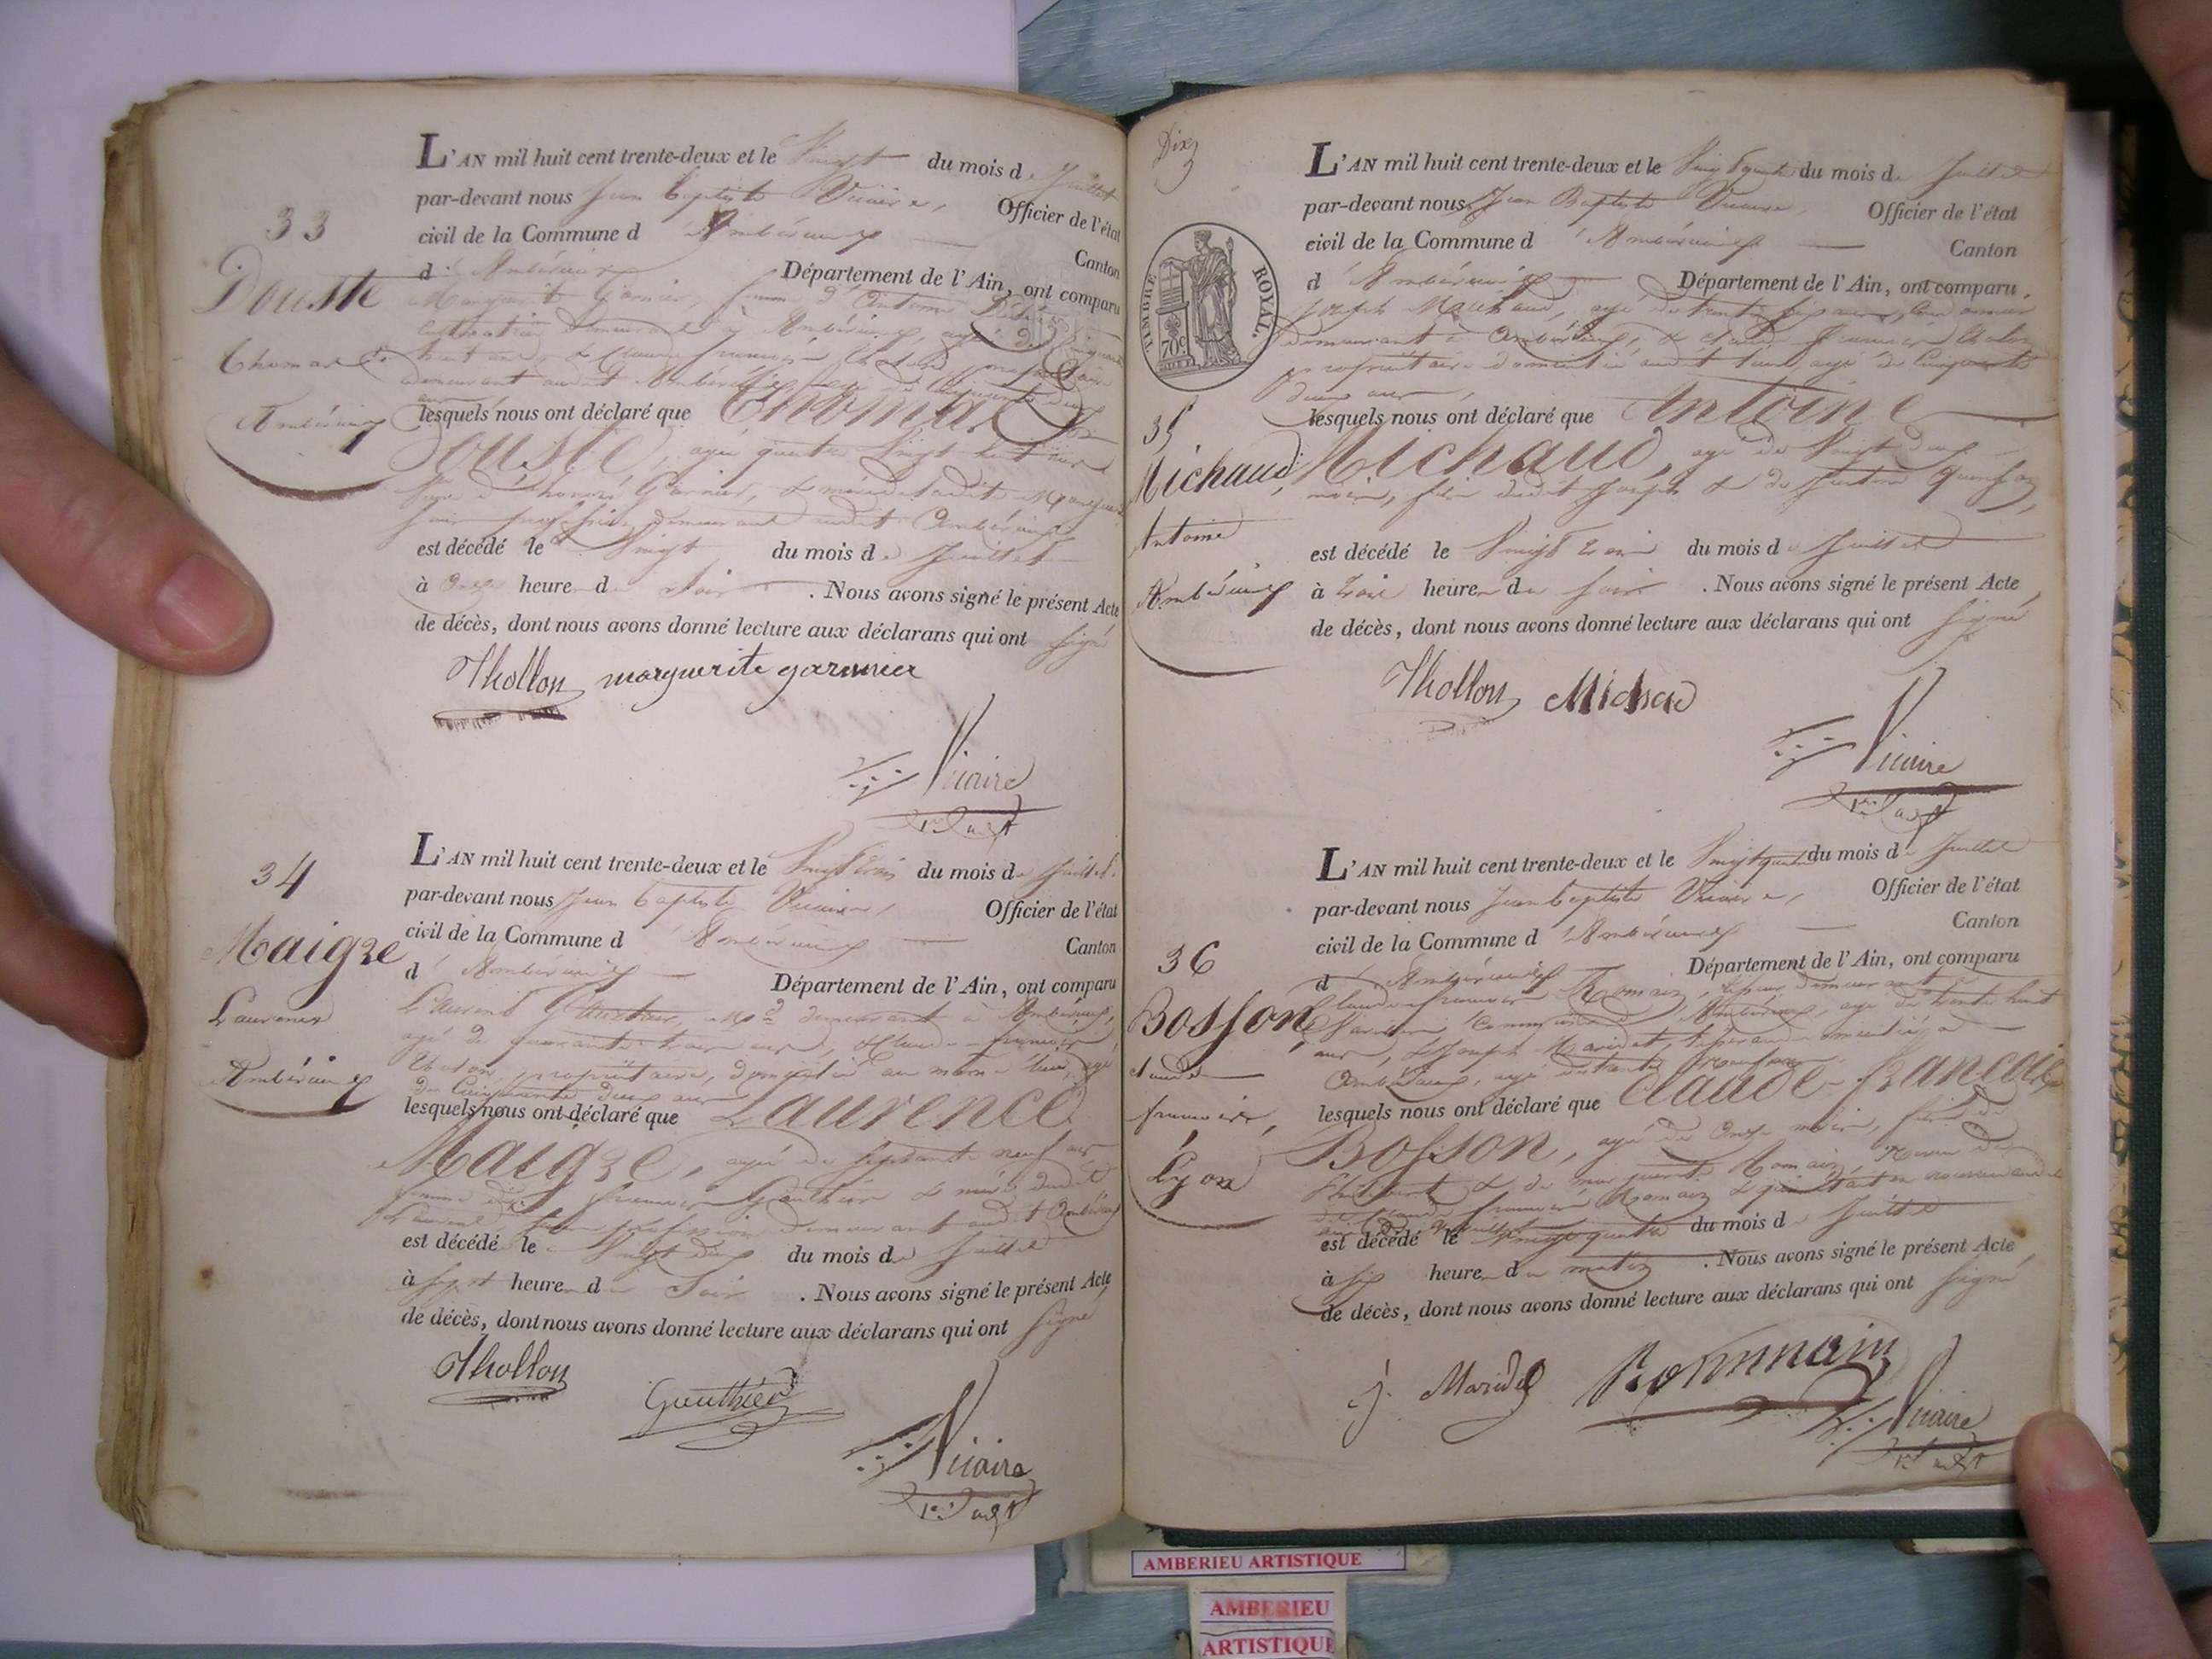 33
Douste
Thomas
Ambérieux
L'AN mil huit cent trente-deux et le Vingt du mois de Juillet
par-devant nous Jean Baptiste Vicaire, Officier de l'état
civil de la Commune d'Ambérieux Canton
d'Ambérieux Département de l'Ain, ont comparu
Marguerite Garnier, femme d'Antoine
demeurant à Ambérieux, âgée de
trente ans, & Claude françois
demeurant audit Ambérieux, âgé de Cinquante deux
lesquels nous ont déclaré que Thomas
Douste, agée quatre Vingt huit ans
Garnier, & mère de ladite Marguerite
sans profession demeurant audit Ambérieux
est décédé le Vingt du mois de Juillet
à Onze heure du Soir. Nous avons signé le présent Acte
de décès, dont nous avons donné lecture aux déclarans qui ont signé
Thollon marguerite garnier
Vicaire
34
Maigre
Laurence
Ambérieux
L'AN mil huit cent trente-deux et le Vingt trois du mois de Juillet.
par-devant nous Jean Baptiste Vicaire, Officier de l'état
civil de la Commune d'Ambérieux Canton
d'Ambérieux Département de l'Ain, ont comparu
Laurent Gauthier, demeurant à Ambérieux,
agé de quarante trois ans, & Claude françois
propriétaire, domicilié au même lieu, agé
de Cinquante deux ans
lesquels nous ont déclaré que Laurence
Maigre, agée de Septante neuf ans
femme de françois Gauthier & mère dudit
Laurent sans profession demeurant audit Ambérieux
est décédé le Vingt deux du mois de Juillet
à Sept heure du Soir. Nous avons signé le présent Acte
de décès, dont nous avons donné lecture aux déclarans qui ont signé
Thollon
Gauthier
Vicaire
Dix
TIMBRE ROYAL
70c
35
Michaud
Antoine
Ambérieux
L'AN mil huit cent trente-deux et le Vingt quatre du mois de Juillet
par-devant nous Jean Baptiste Vicaire, Officier de l'état
civil de la Commune d'Ambérieux Canton
d'Ambérieux Département de l'Ain, ont comparu
Joseph Michaud, agé de trente six ans, Cordonnier
demeurant à Ambérieux, & Claude françois
propriétaire domicilié audit lieu, agé de Cinquante
deux ans,
lesquels nous ont déclaré que Antoine
Michaud, agé de Vingt deux
mois, fils dudit Joseph & de
est décédé le Vingt trois du mois de Juillet
à trois heure du soir. Nous avons signé le présent Acte
de décès, dont nous avons donné lecture aux déclarans qui ont signé
Thollon Michaud
Vicaire
36
Bosson
Claude
françois,
Lyon
L'AN mil huit cent trente-deux et le Vingt quatre du mois de Juillet
par-devant nous Jean Baptiste Vicaire, Officier de l'état
civil de la Commune d'Ambérieux Canton
d'Ambérieux Département de l'Ain, ont comparu
Claude françois Romain, demeurant
Ambérieux, agé de trente huit
ans, & Joseph Maridet, domicilié à
Ambérieux, agé de trente
lesquels nous ont déclaré que Claude-françois
Bosson, agé de Onze mois, fils de
& de marguerite Romain,
Claude françois Romain
est décédé le Vingt quatre du mois de Juillet
à six heure du matin. Nous avons signé le présent Acte
de décès, dont nous avons donné lecture aux déclarans qui ont signé
j. Maridet Rommain
Vicaire
AMBERIEU ARTISTIQUE
AMBERIEU
ARTISTIQUE